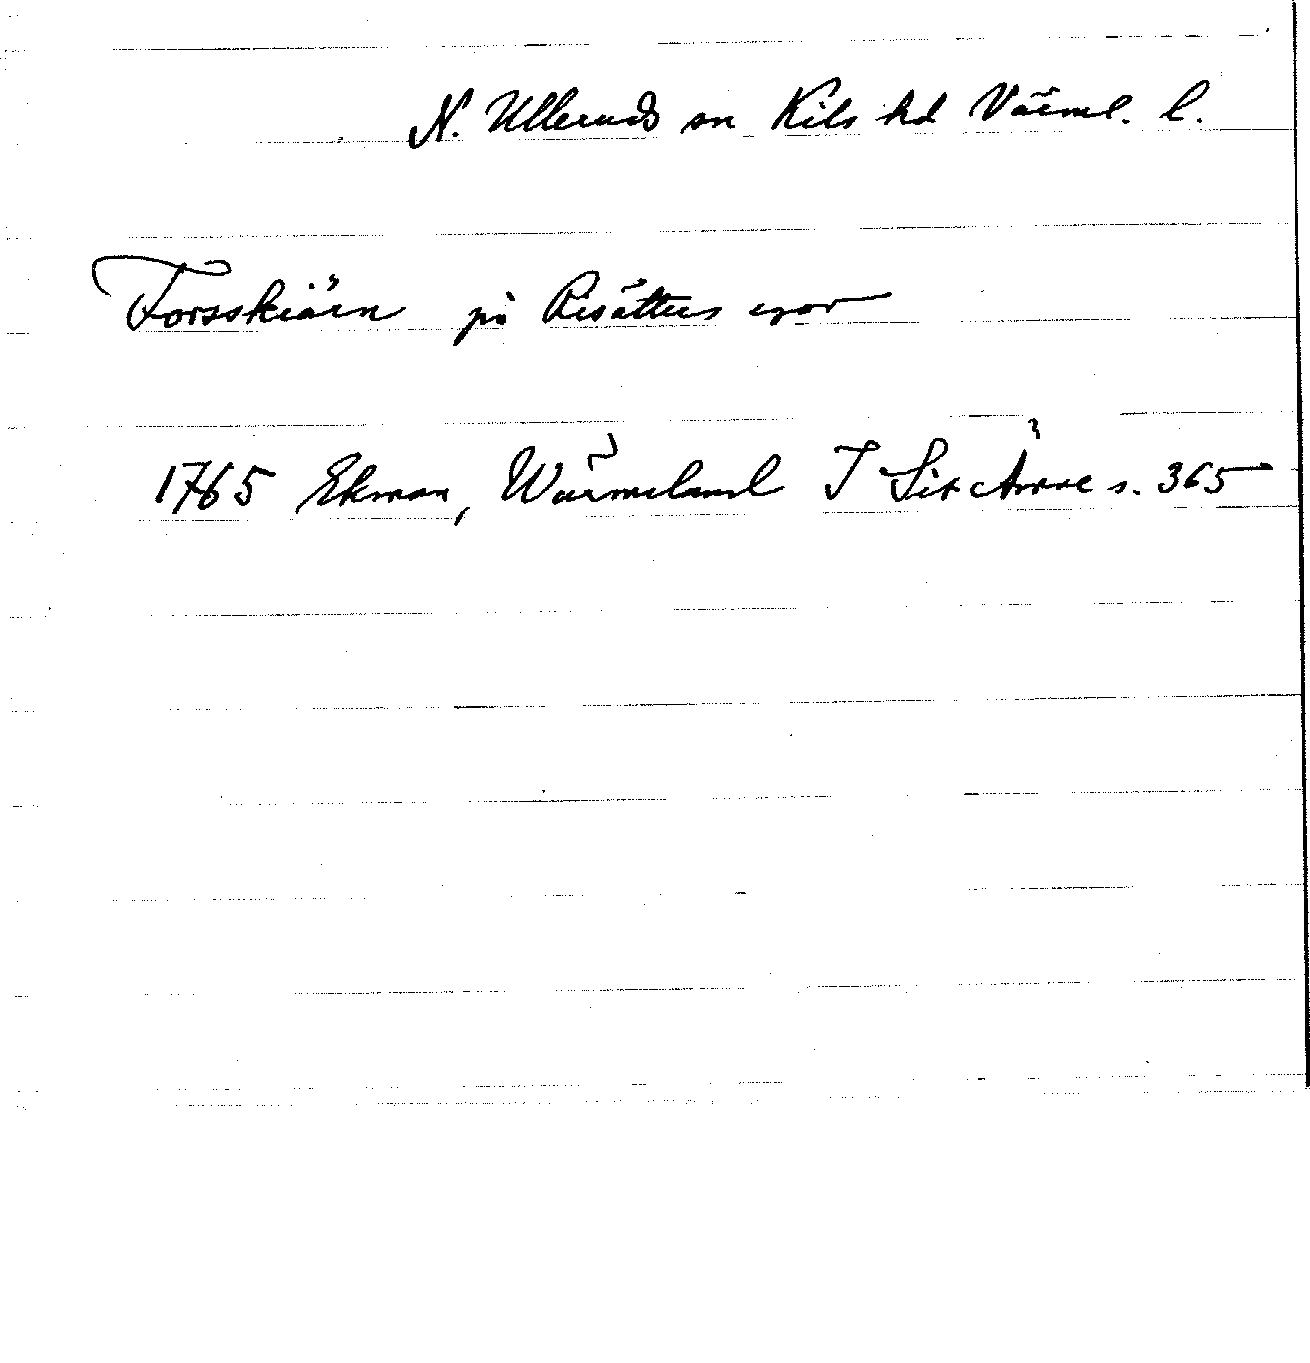 N. Ulleruds sn Kils hd Värml. l.
Forsskiärn på Risäters egor
1765 Ekman, Wärmeland I Sitt Ämne s. 365